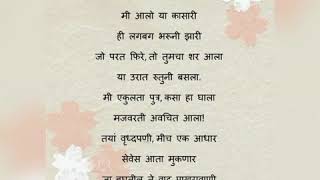 मी आलो या कासारी
ही लगबग भरूनी झारी
जो परत फिरे, तो तुमचा शर आला
या उरात रुतुनी बसला.
मी एकुलता पुत्र, कसा हा घाला
मजवरती अवचित आला!
तयां वृध्दपणी, मीच एक आधार
सेवेस आता मुकणार